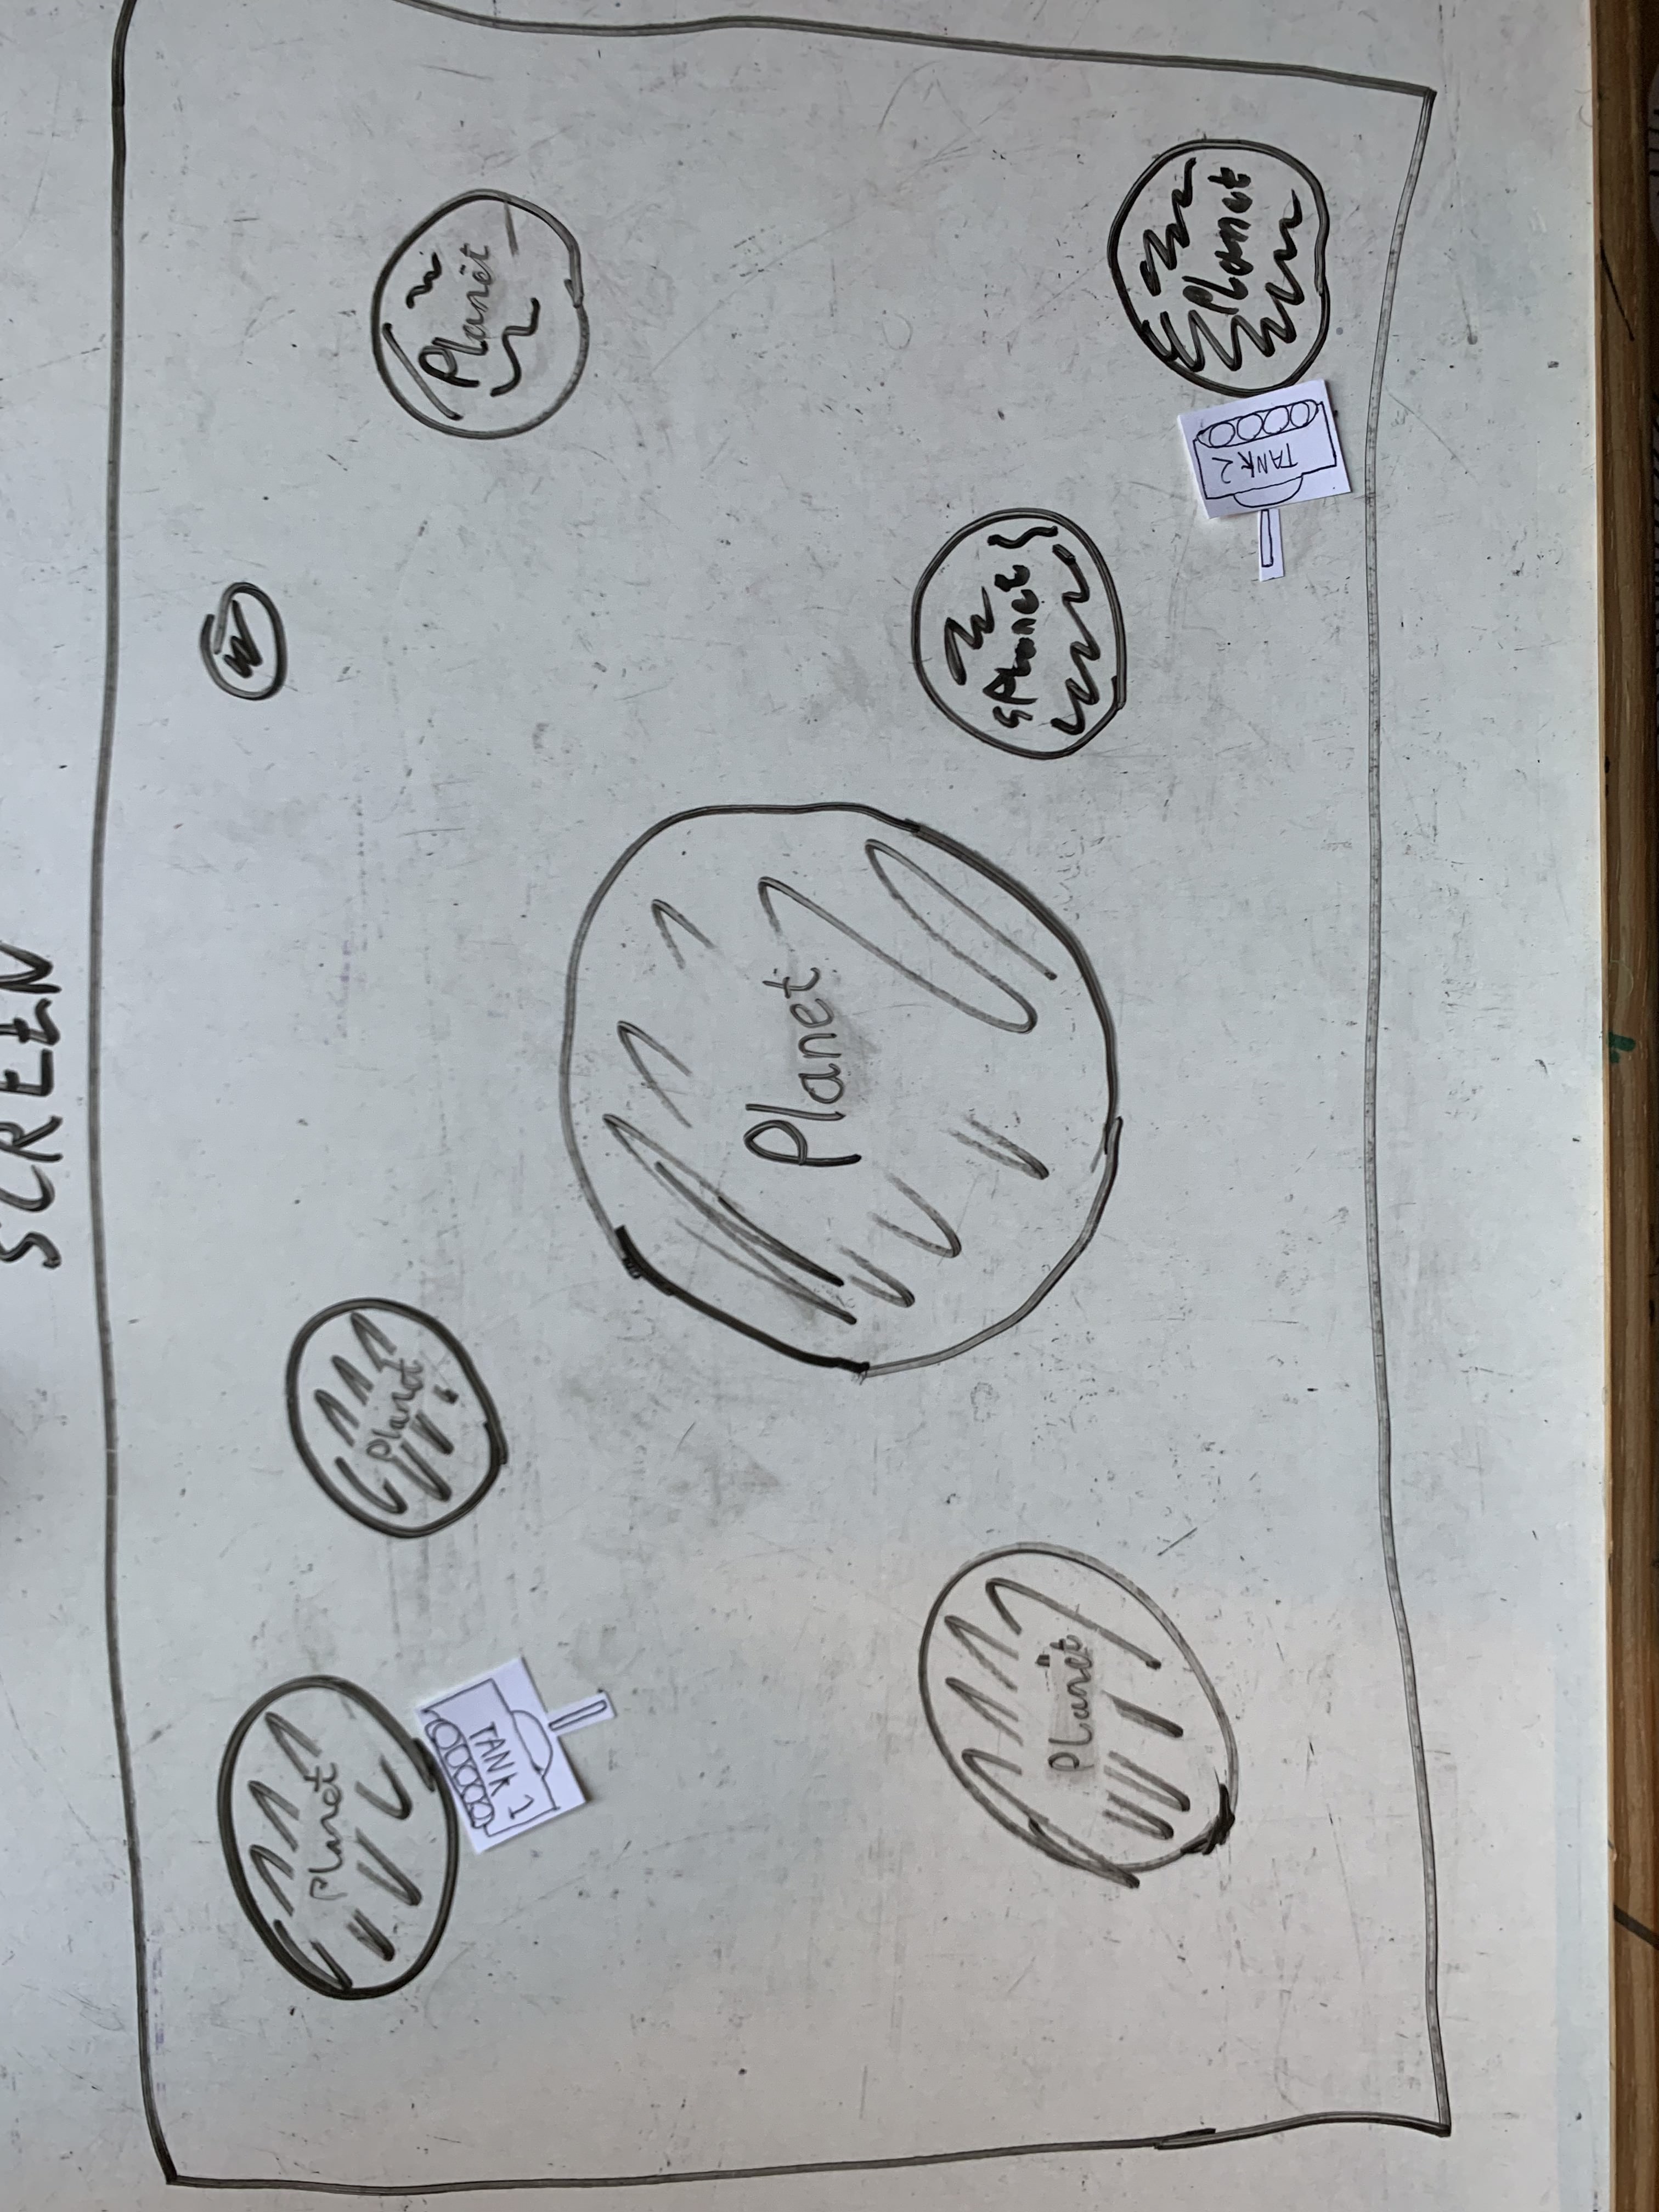 SCREEN
Planet
Planet
Planet
TANK 1
Planet
Planet
Planet
Planet
TANK 2